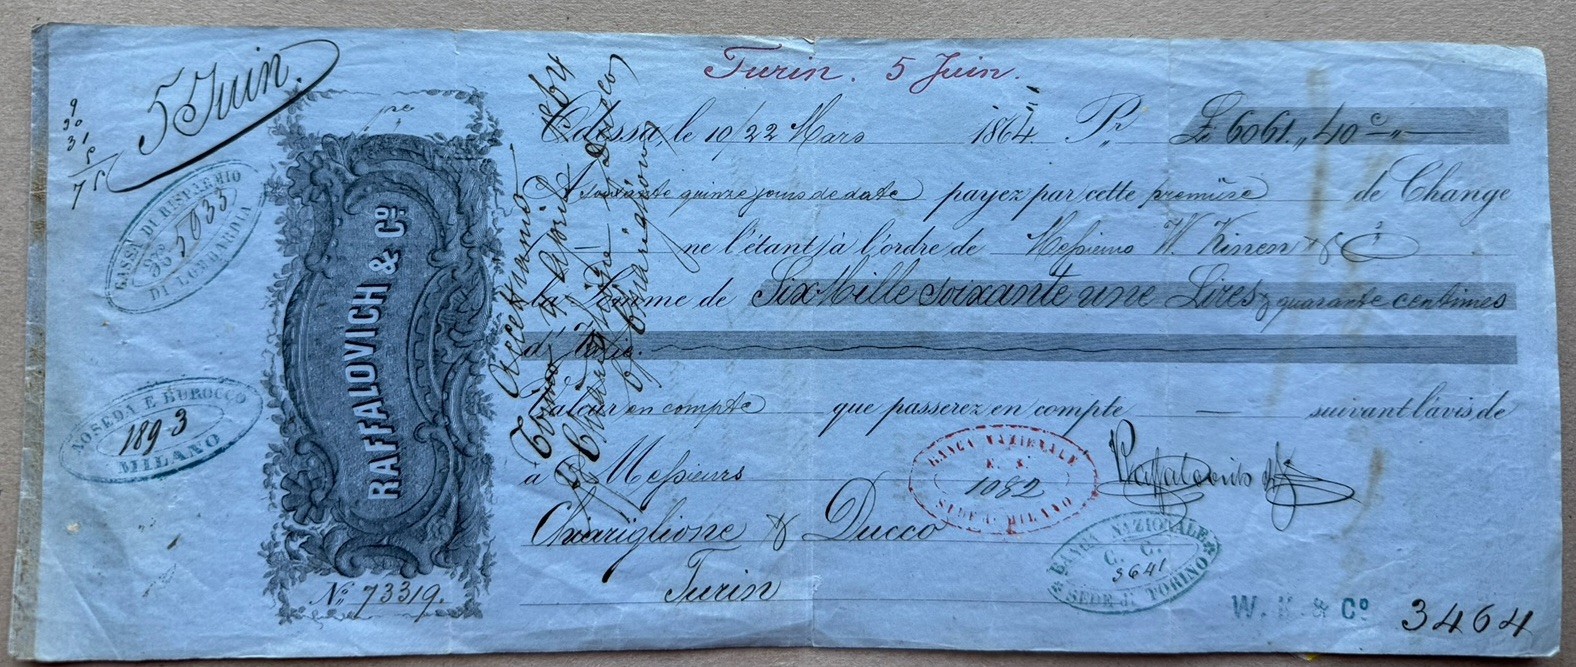 5 Juin.
9
30
31
5
75
Turin. 5 Juin.
Odessa, le 10/22 Mars 1864. Pr. £ 6061.,,40 c
A soixante quinze jours de date payez par cette première de Change
ne l'étant à l'ordre de Messieurs W. Kinen & Co
la Somme de Six Mille soixante une Lires, quarante centimes
d'Italie.
Valeur en compte que passerez en compte — suivant l'avis de
à Messieurs
Chiariglione & Ducco
Turin
Raffalovich & Co
RAFFALOVICH & Co.
No. 73319.
CASSA DI RISPARMIO
No. 5035
DI LOMBARDIA
NOSEDA E BUROCCO
189-3
MILANO
Accettiamo
Torino Aprile 1864
Chiariglione Ducco
Chiariglione
BANCA NAZIONALE
1082
SEDE DI MILANO
BANCA NAZIONALE
C. C.
3641
SEDE DI TORINO
W. K. & Co
3464